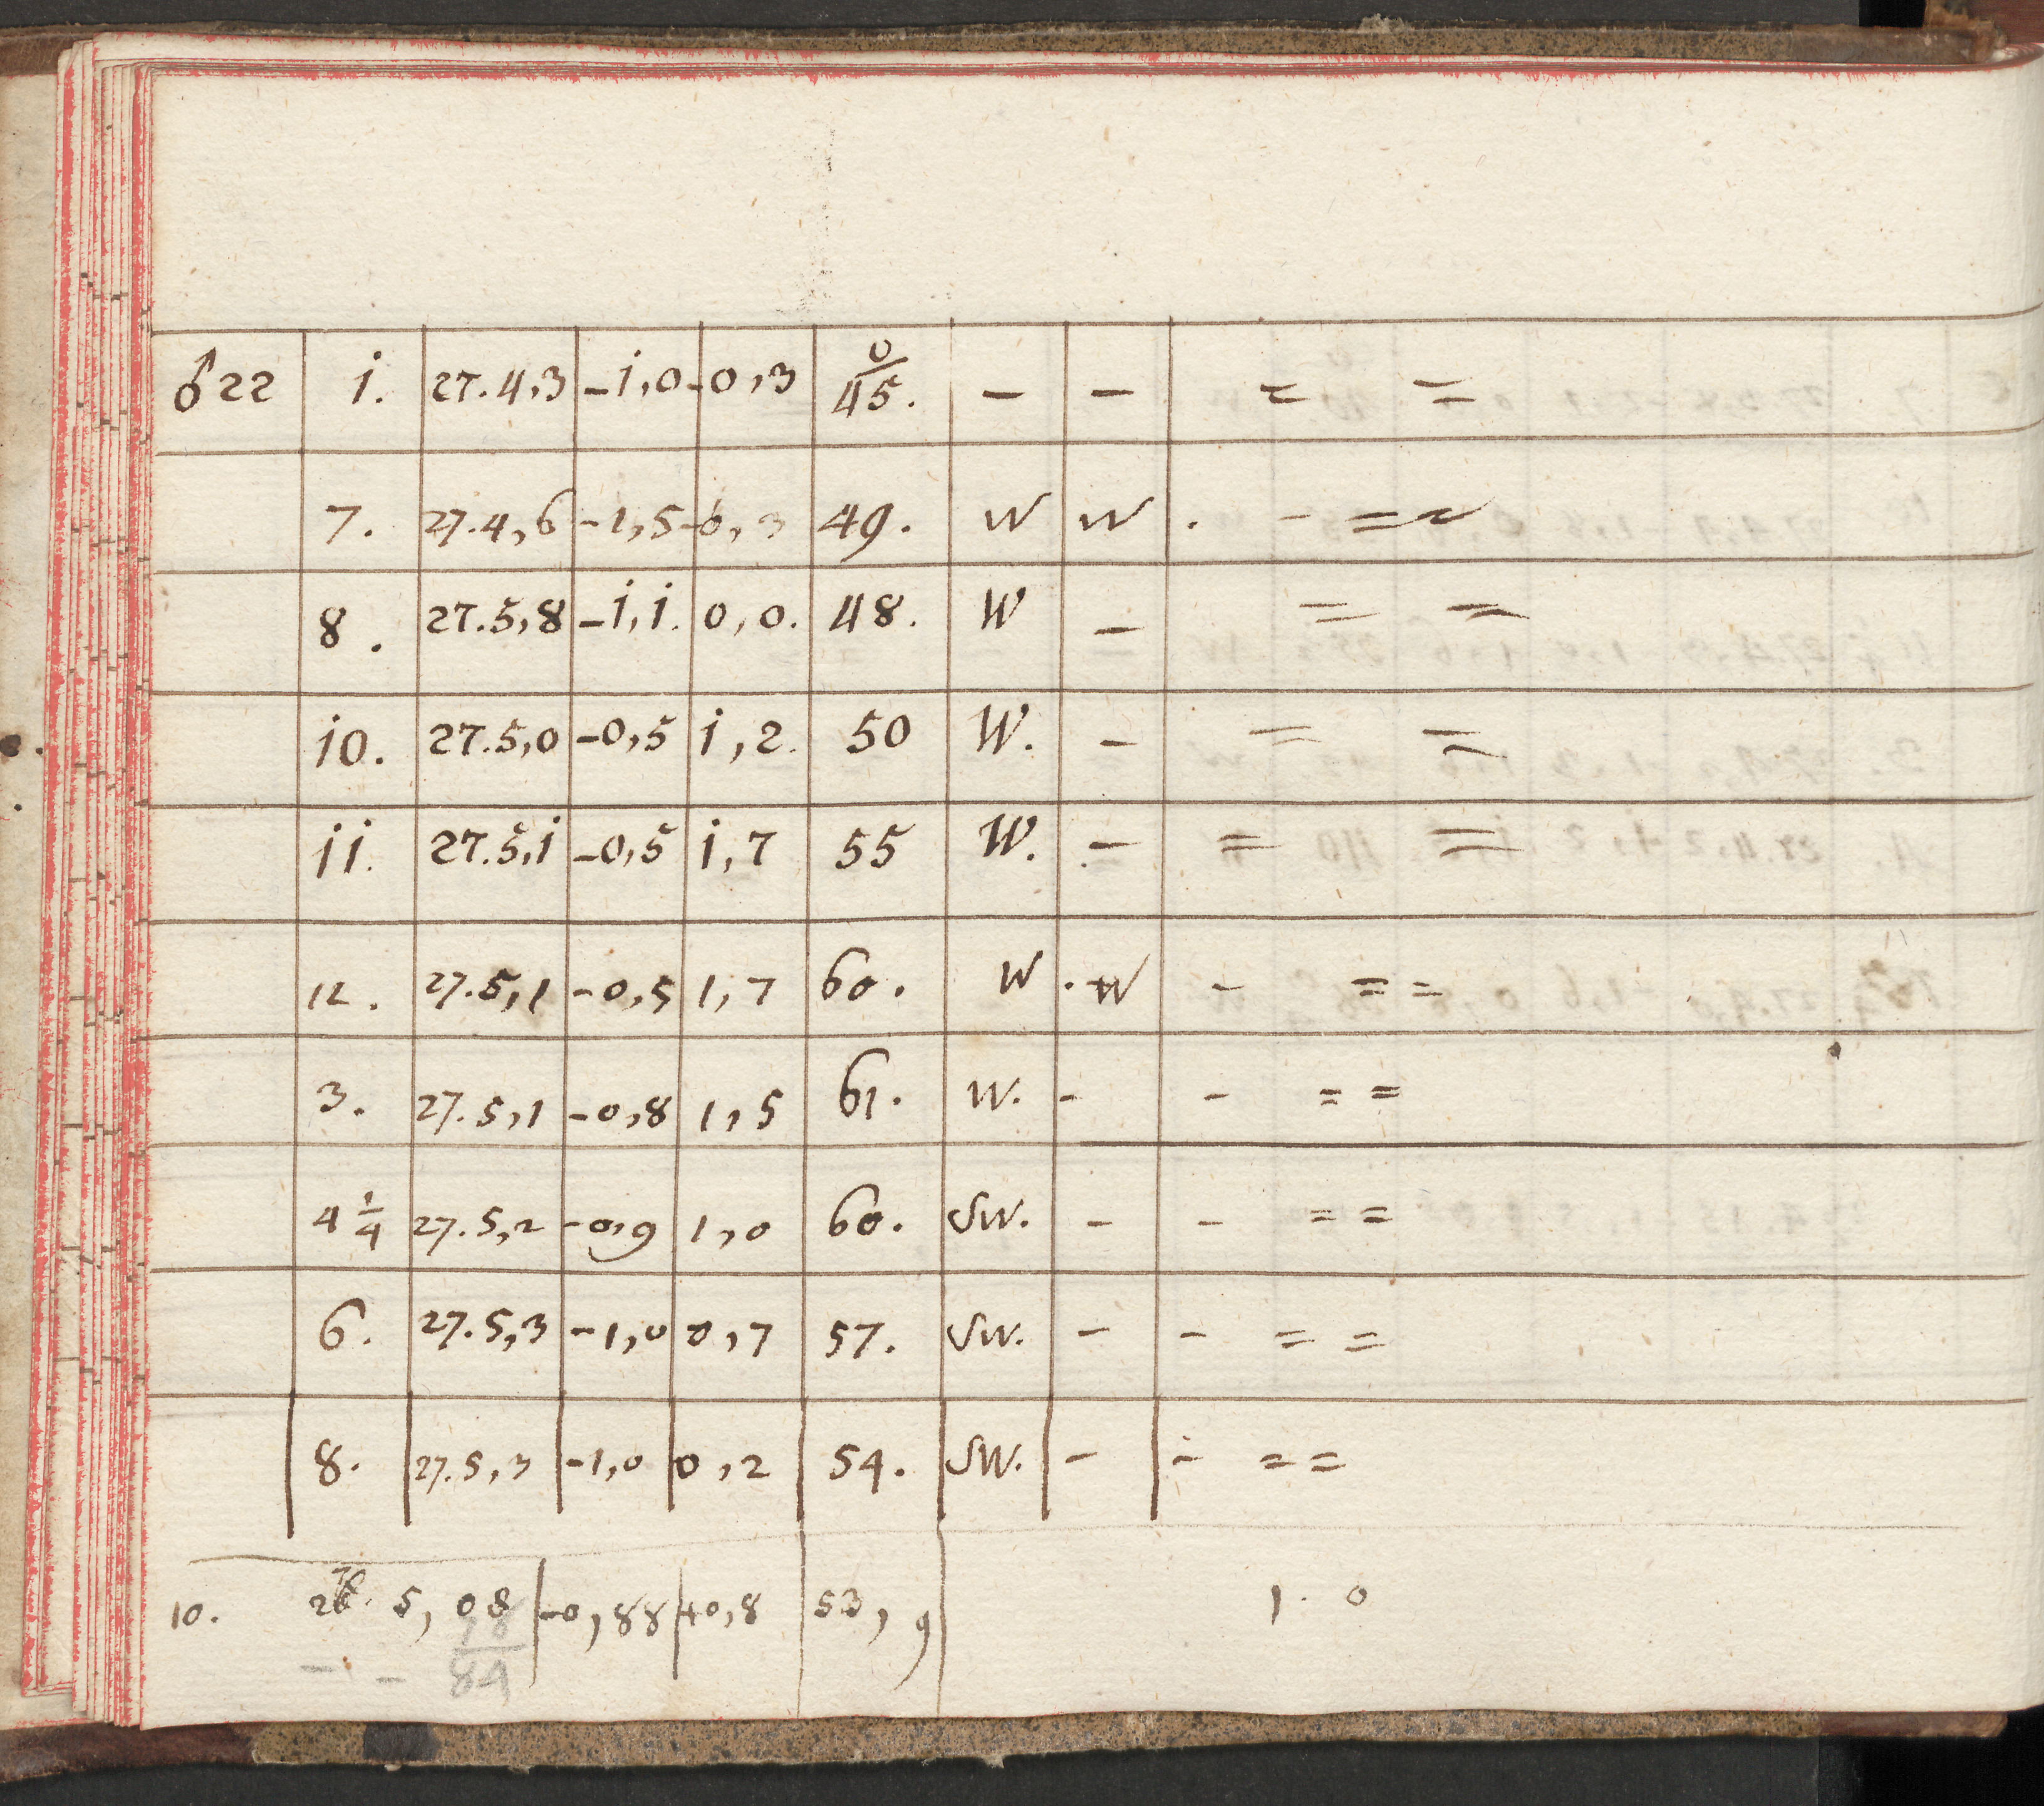 ♂ 22 1. 27.4,3 -1,0 -0,3 0/45. - - = =
7. 27.4,6 -1,5 -0,3 49. W W . - = =
8. 27.5,8 -1,1. 0,0. 48. W - = =
10. 27.5,0 -0,5 1,2. 50 W. - = =
11. 27.5,1 -0,5 1,7 55 W. - = =
12. 27.5,1 -0,5 1,7 60. W . W - = =
3. 27.5,1 -0,8 1,5 61. W. - - = =
4 1/4 27.5,2 -0,9 1,0 60. SW. - - = =
6. 27.5,3 -1,0 0,7 57. SW. - - = =
8. 27.5,3 -1,0 0,2 54. SW. - - = =
10. 5,08 -0,88 +0,8 53,9 1. 0
- - 84